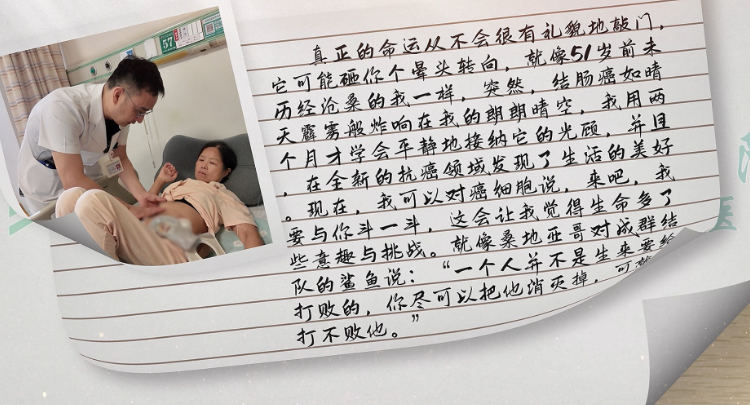 真正的命运从不会很有礼貌地敲门，
它可能砸你个晕头转向，就像51岁前未
历经沧桑的我一样，突然，结肠癌如晴
天霹雳般炸响在我的朗朗晴空，我用两
个月才学会平静地接纳它的光顾，并且
，在全新的抗癌领域发现了生活的美好
。现在，我可以对癌细胞说，来吧，我
要与你斗一斗，这会让我觉得生命多了
些意趣与挑战。就像桑地亚哥对成群结
队的鲨鱼说：“一个人并不是生来要给
打败的，你尽可以把他消灭掉，可就
打不败他。”
57
医